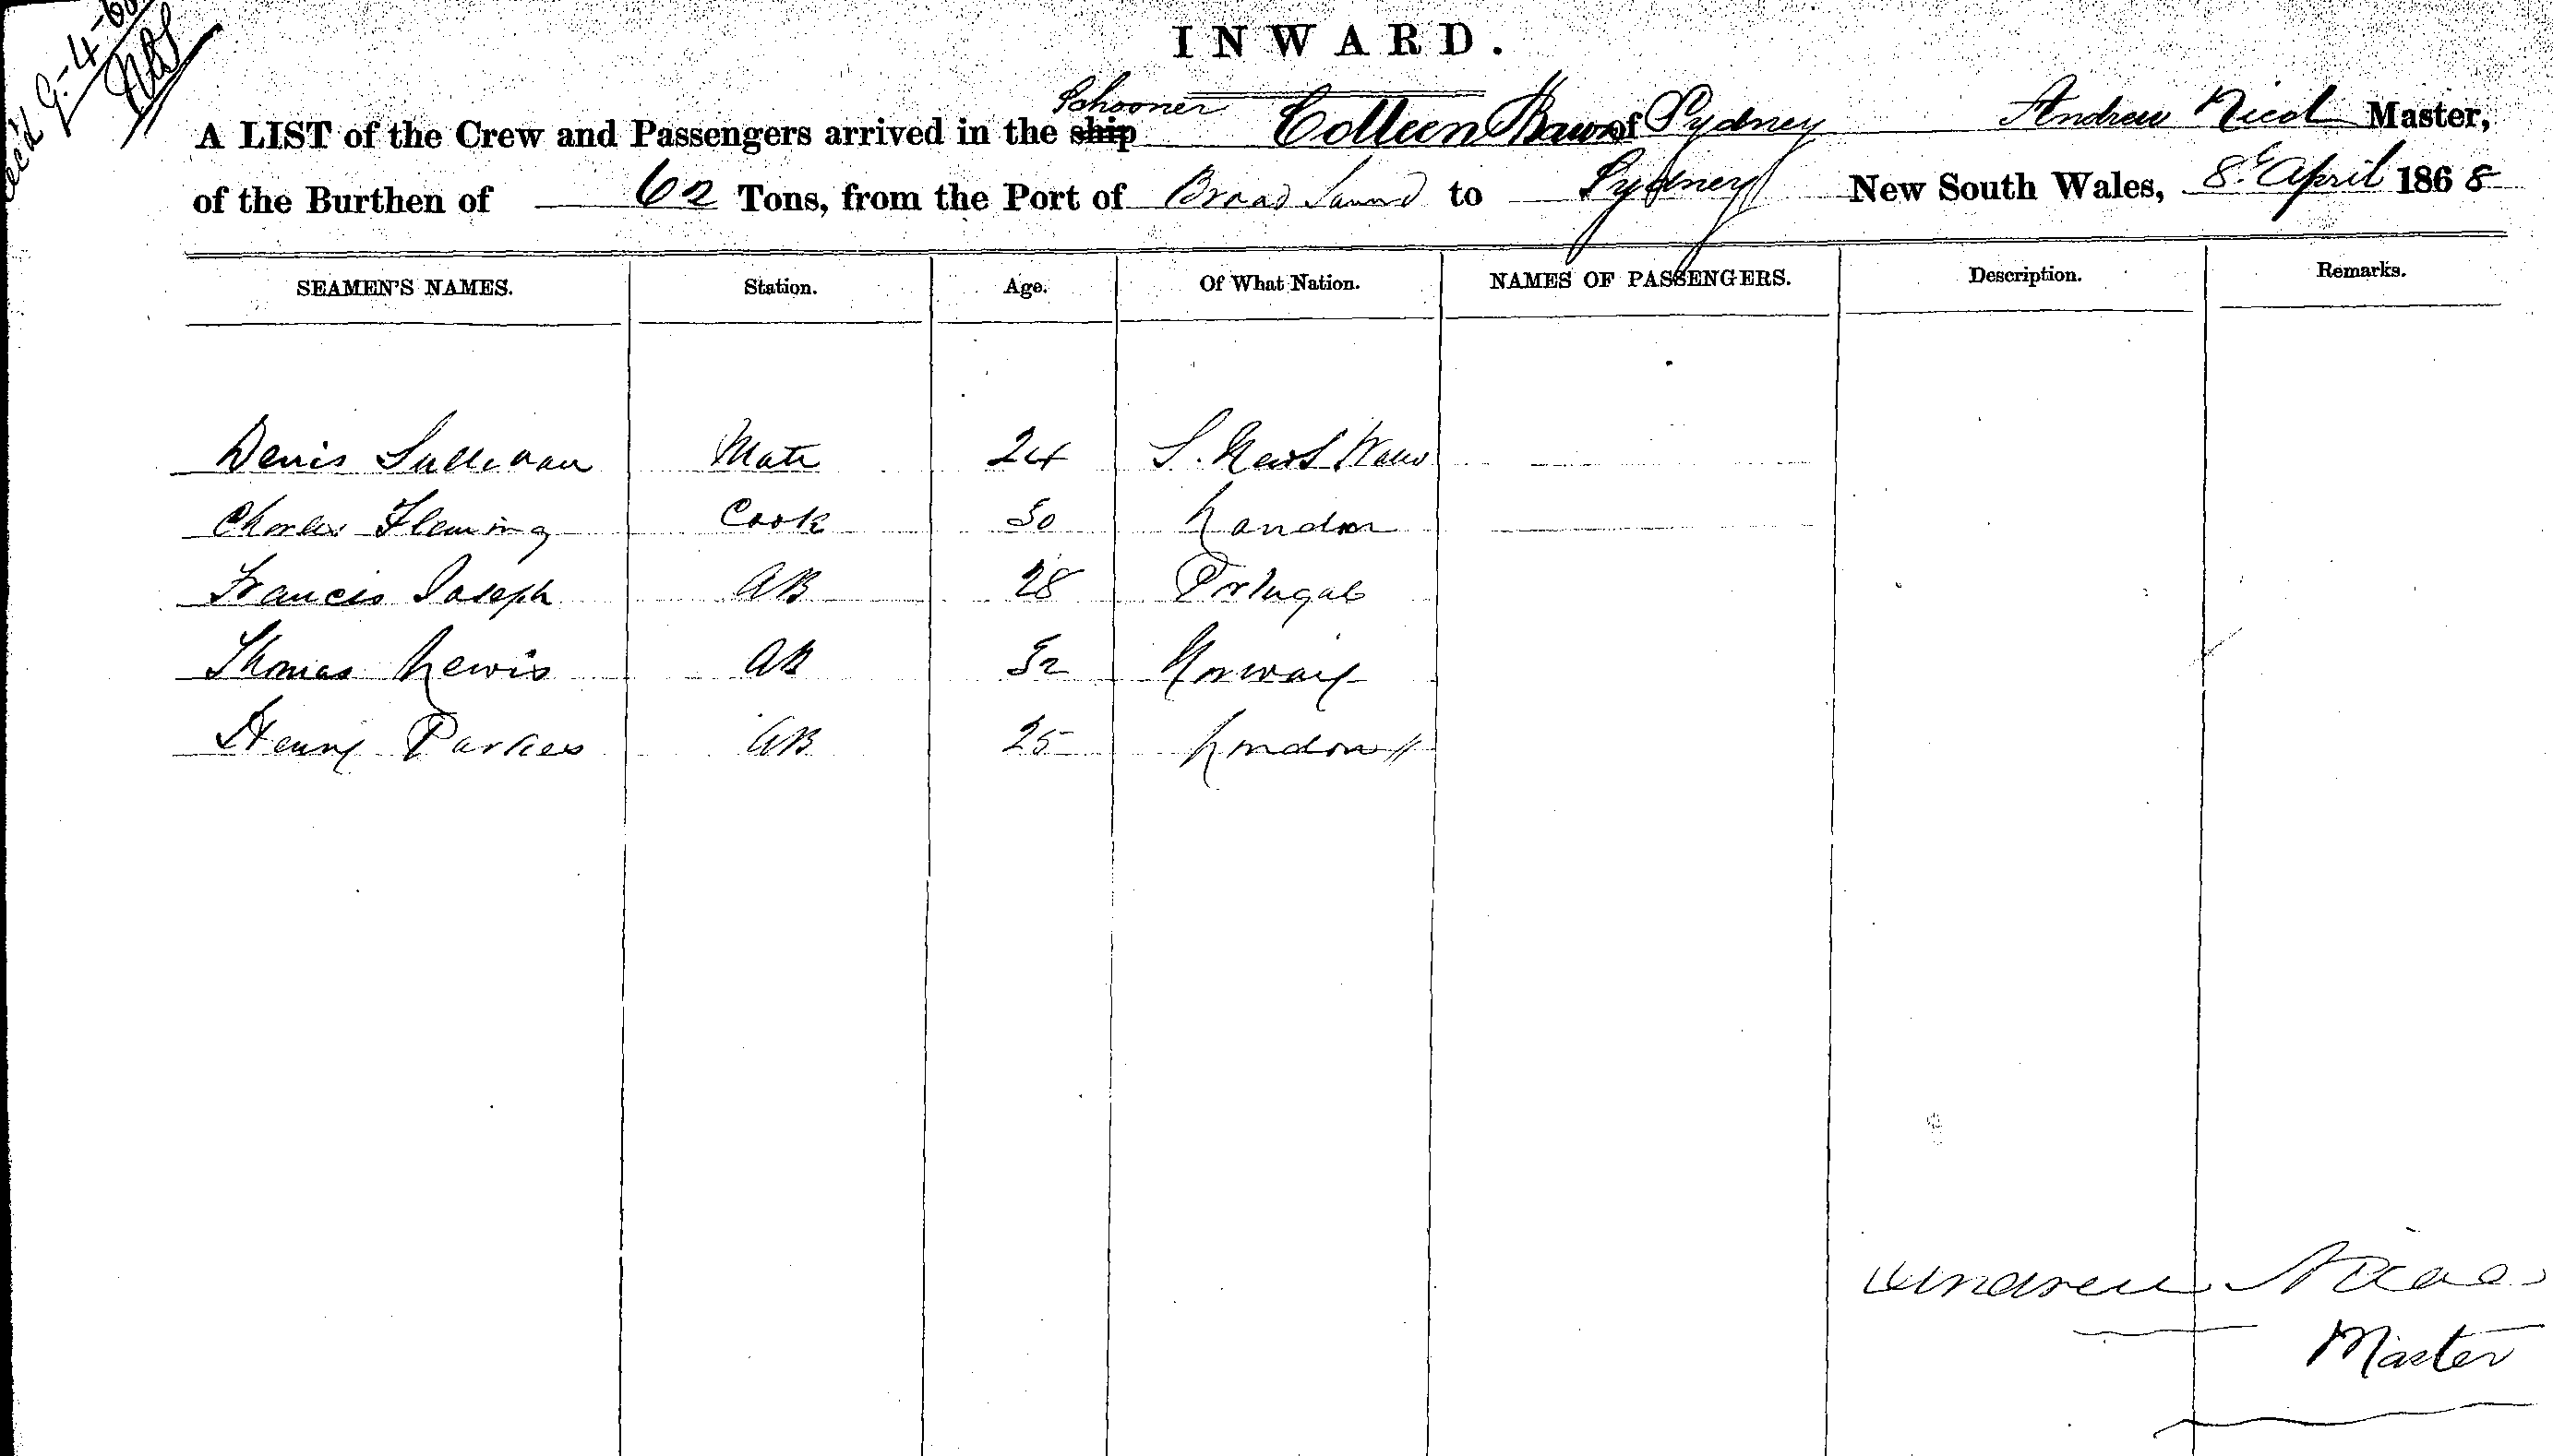 Rec'd 9-4-68
INWARD.
A LIST of the Crew and Passengers arrived in the ship Schooner Colleen Bawn of Sydney Andrew Nicol Master,
of the Burthen of 62 Tons, from the Port of Broad Sound to Sydney New South Wales, 8th April 1868
SEAMEN'S NAMES. Station. Age. Of What Nation. NAMES OF PASSENGERS. Description. Remarks.
Denis Sullivan Mate 24 S. New S Wales
Charles Fleming Cook 50 London
Francis Joseph AB 28 Portugal
Thomas Lewis AB 52 Norway
Henry Parkes AB 25 London
Andrew Nicol
Master